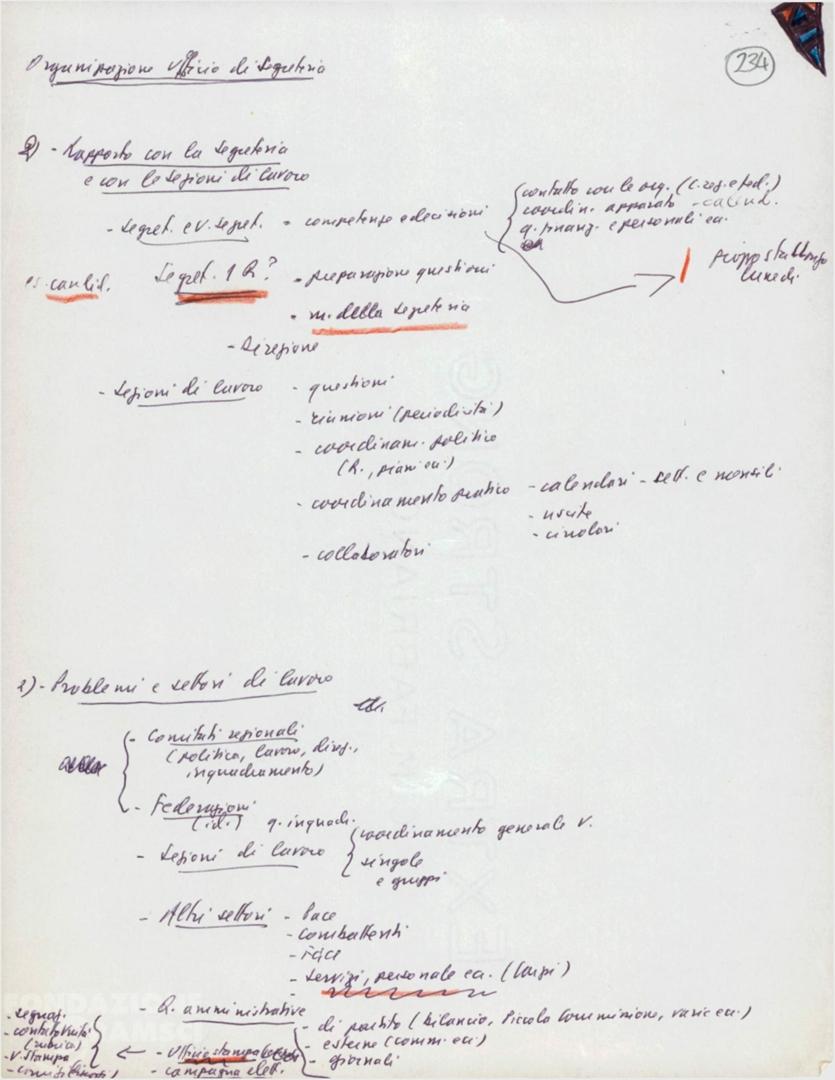 234
Organizzazione Ufficio di Segreteria
2) - Rapporto con la Segreteria
e con le Sezioni di lavoro
- Segret. e V. Segret. - competenze e decisioni
contatto con le org. (c. reg. e fed.)
coordin. apparato - calend.
q. finanz. e personali ecc.
proposta
lunedì
Segret. 1 R? - preparazione questioni
- m. della Segreteria
- Direzione
- Sezioni di lavoro - questioni
- riunioni (periodicità)
- coordinam. politico
(R., piani ecc.)
- coordinamento pratico - calendari - sett. e mensili
- uscite
- circolari
- collaboratori
2) - Problemi e settori di lavoro
- Comitati regionali
(politica, lavoro, direz.,
inquadramento)
- Federazioni
(id.) q. inquadr.
- Sezioni di lavoro
coordinamento generale V.
singole
e gruppi
- Altri settori - Pace
- combattenti
- servizi, personale ecc.
- Q. amministrative
- di partito (bilancio, Piccola Commissione, varie ecc.)
- esterne (comm. ecc.)
- giornali
- Ufficio stampa
- campagna elett.
- segnaz.
- V. Stampa
FONDAZIONE
GRAMSCI